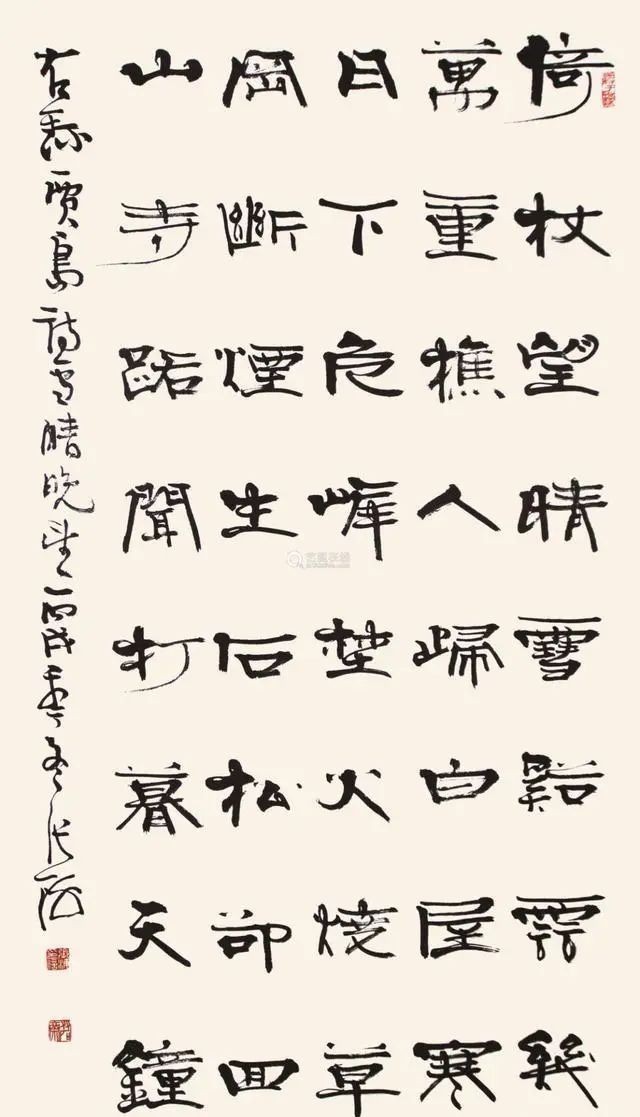 倚杖望晴雪谿雲幾
萬重樵人歸白屋寒
日下危峰埜火燒草
岡斷煙生石松卻回
山寺路聞打暮天鐘
右録賈島詩雪晴晚望丙戌季冬张海